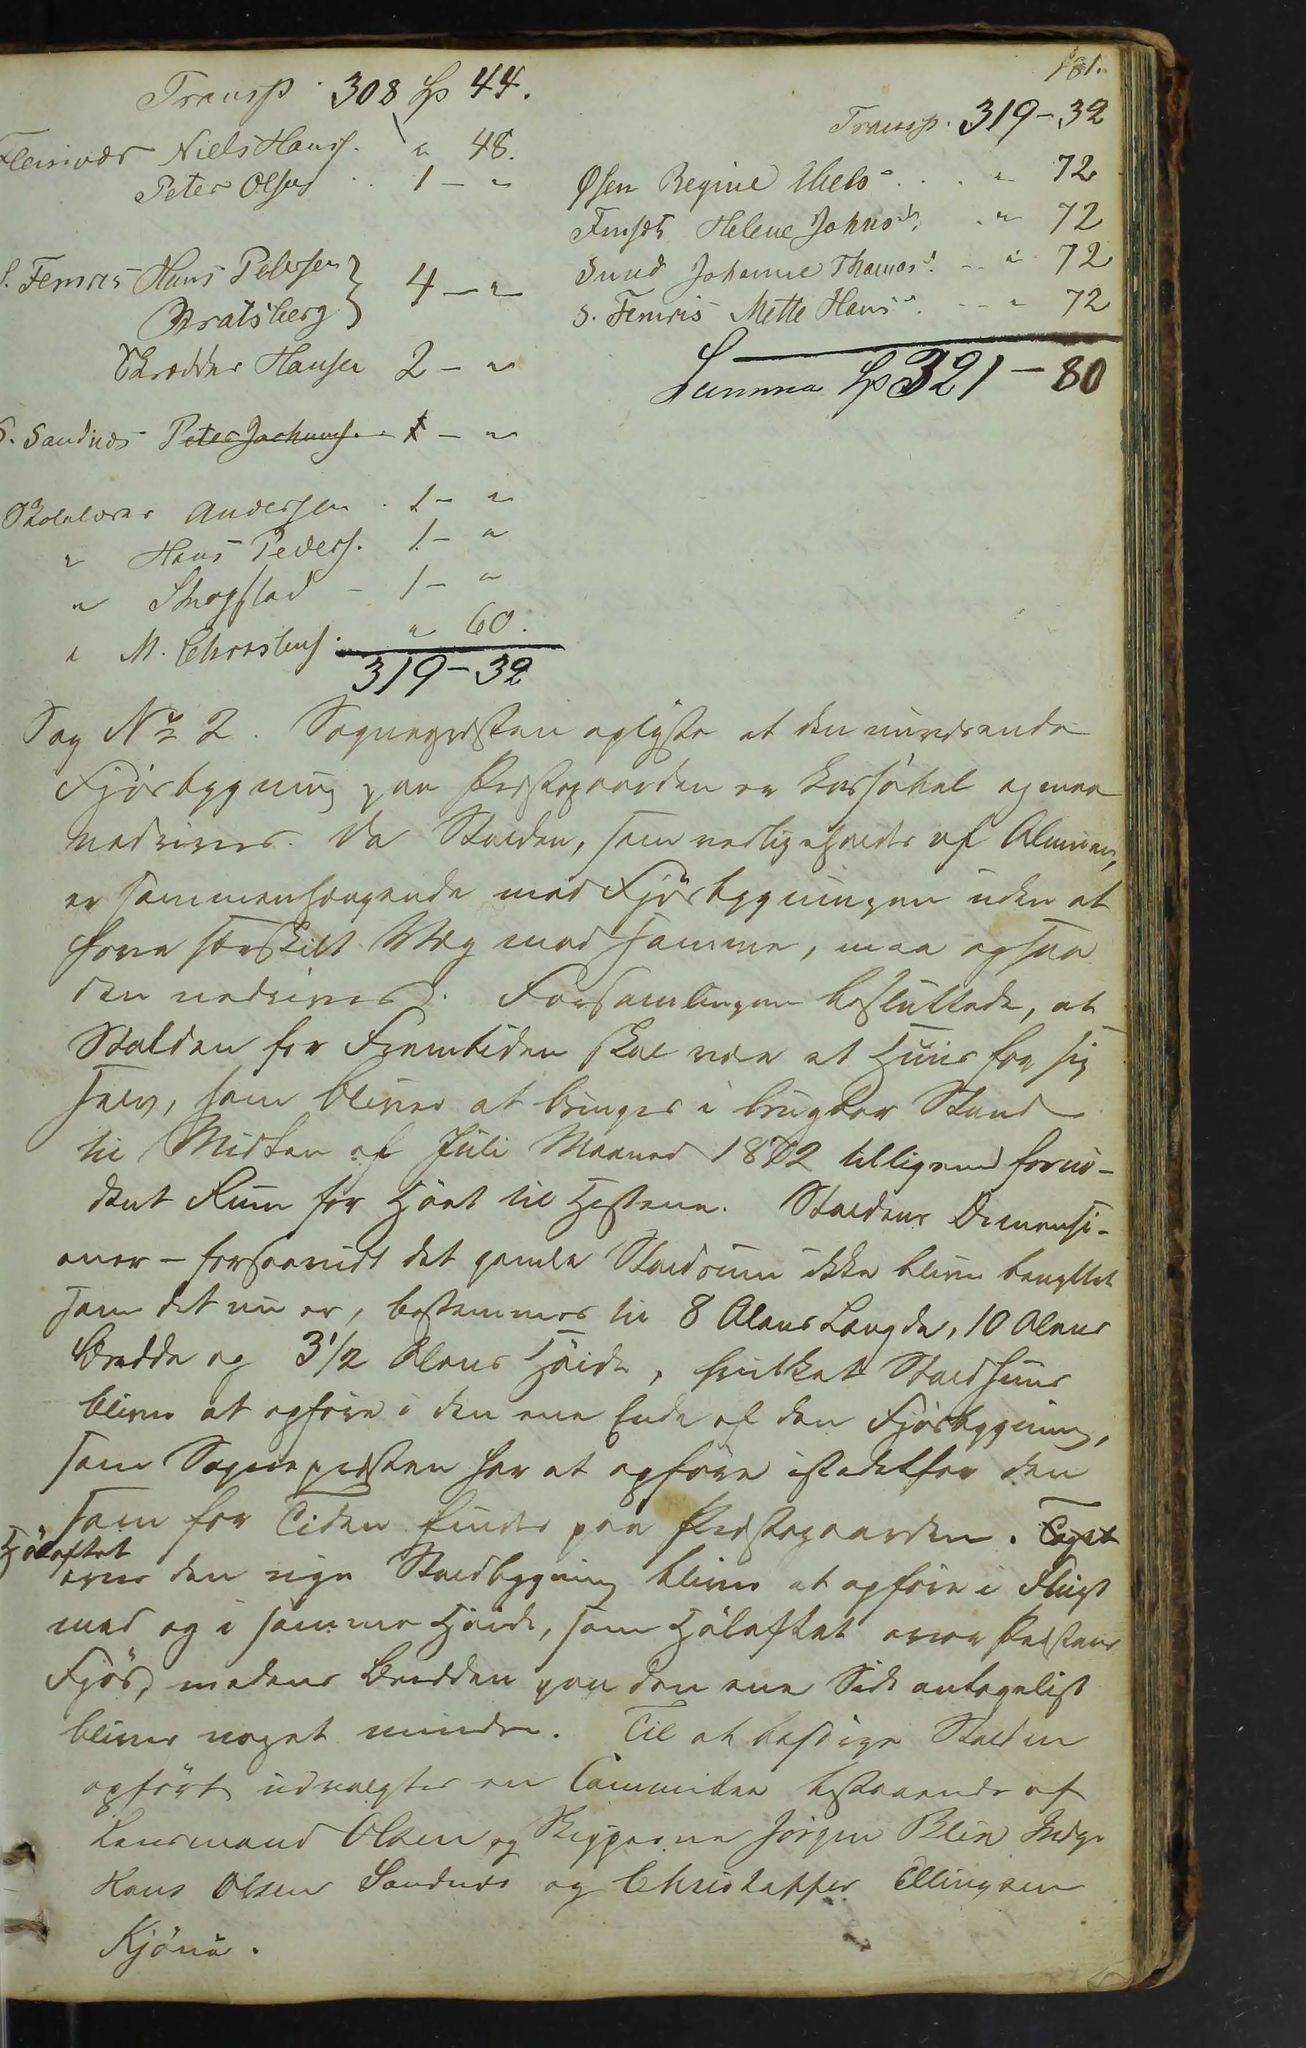 181.
Transp. 308 Sp 44.
Fleinvær Niels Hanss. " 48.
Peter Olsen . . 1 - "
S. Femris Hans Pedersen } 4 - "
Bratsberg
Skrædder Hansen 2 - "
S. Sandnæs Peter Jochums. 1 - "
Skolelærer Andersen . 1 - "
" Hans Peders. 1 - "
" Skogstad - 1 - "
" M. Christens. " 60.
319 - 32
Transp. 319 - 32
Øsen Regine Niels d. . . " 72
Finset Helene Johns d. . " 72
Sund Johanne Thomas d. . . " 72
S. Femris Mette Hans d. . . " 72
Summa Sp 321 - 80
Sag No 2. Sognepresten oplyste at den nuværende
Fjösbygning paa Prestegaarden er kasabel og maa
nedrives. Da Stalden, som vedligeholdes af Almuen,
er sammenhængende med Fjösbygningen uden at
have særskilt Væg mod samme, maa ogsaa
den nedrives. Forsamlingen besluttede, at
Stalden for Fremtiden skal være et Huus for sig
selv, som bliver at bringes i brugbar Stand
til Midten af Juli Maaned 1872 tilligemed fornö-
dent Rum for Höet til Hestene. Staldens Dimensi-
oner - forsaavidt det gamle Staldrum ikke bliver benyttet
som det nu er, bestemmes til 8 Alens Længde, 10 Alens
Bredde og 3 1/2 Alens Höide, hvilket Staldhuus
bliver at opföre i den ene Ende af den Fjösbygning,
som Sognepresten har at opföre istedetfor den
som for Tiden findes paa Prestegaarden. Taget
Höloftet
over den nye Staldbygning bliver at opföre i Flugt
med og i samme Höide, som Höloftet over Prestens
Fjös, medens Bredden paa den ene Side antagelig
bliver noget mindre. Til at besörge Stalden
opfört udvalgtes en Committee bestaaende af
Lensmand Olsen og Skipperne Jörgen Blix Indyr
Hans Olsen Sandnæs og Christopher Ellingsen
Kjönö.